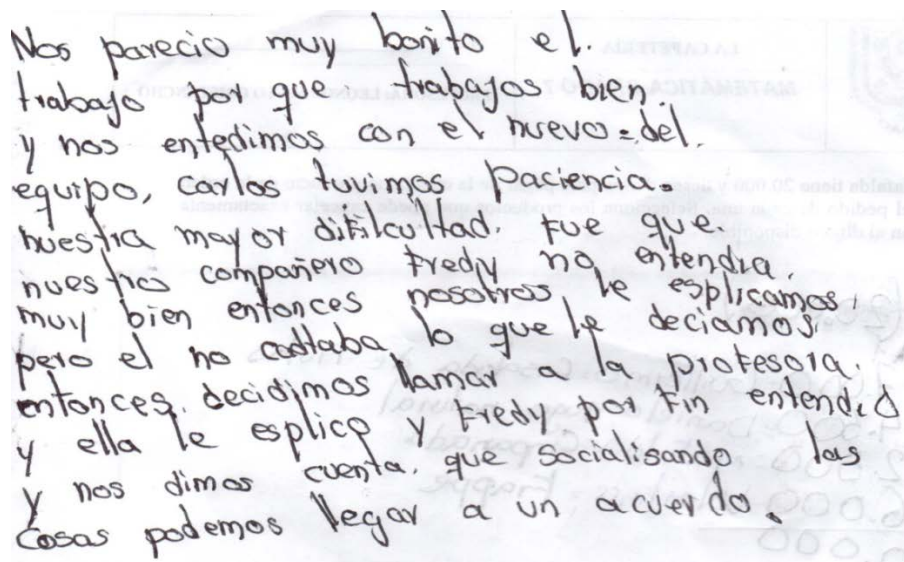 Nos parecio muy bonito el.
trabajo por que. trabajos bien.
y nos entedimos con el nuevo del.
equipo, carlos tuvimos paciencia.
nuestra mayor difilcultad. fue que
nuestros compañero fredy no entendia.
muy bien entonces nosotros le esplicamos,
pero el no castaba lo que le deciamos,
entonces. decidimos llamar a la profesora.
y ella le esplico y Fredy por fin entendio
y nos dimos cuenta. que socialisando las
Cosas podemos llegar a un acuerdo.